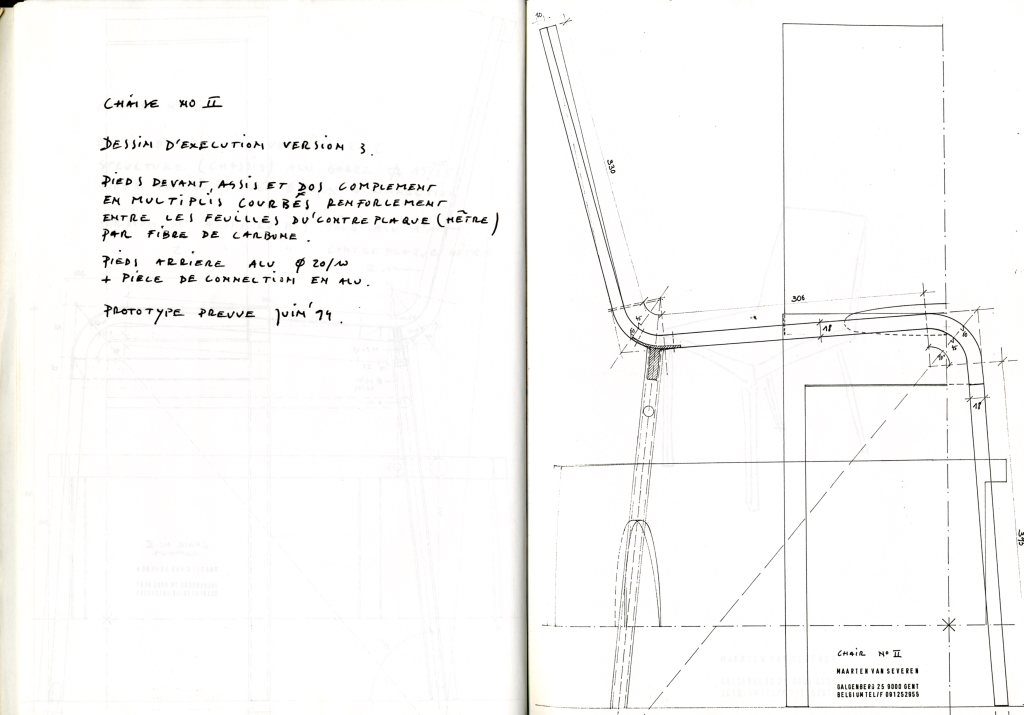 CHAISE NO II
DESSIN D'EXECUTION VERSION 3.
PIEDS DEVANT, ASSIS ET DOS COMPLEMENT
EN MULTIPLIS COURBÉS RENFORCEMENT
ENTRE LES FEUILLES DU'CONTREPLAQUE (HÊTRE)
PAR FIBRE DE CARBONE.
PIEDS ARRIERE ALU Ø 20/10
+ PIECE DE CONNECTION EN ALU.
PROTOTYPE PREUVE JUIN '94.
330
306
18
18
395
CHAIR NO II
MAARTEN VAN SEVEREN
GALGENBERG 25 9000 GENT
BELGIUM TEL/F 091252955